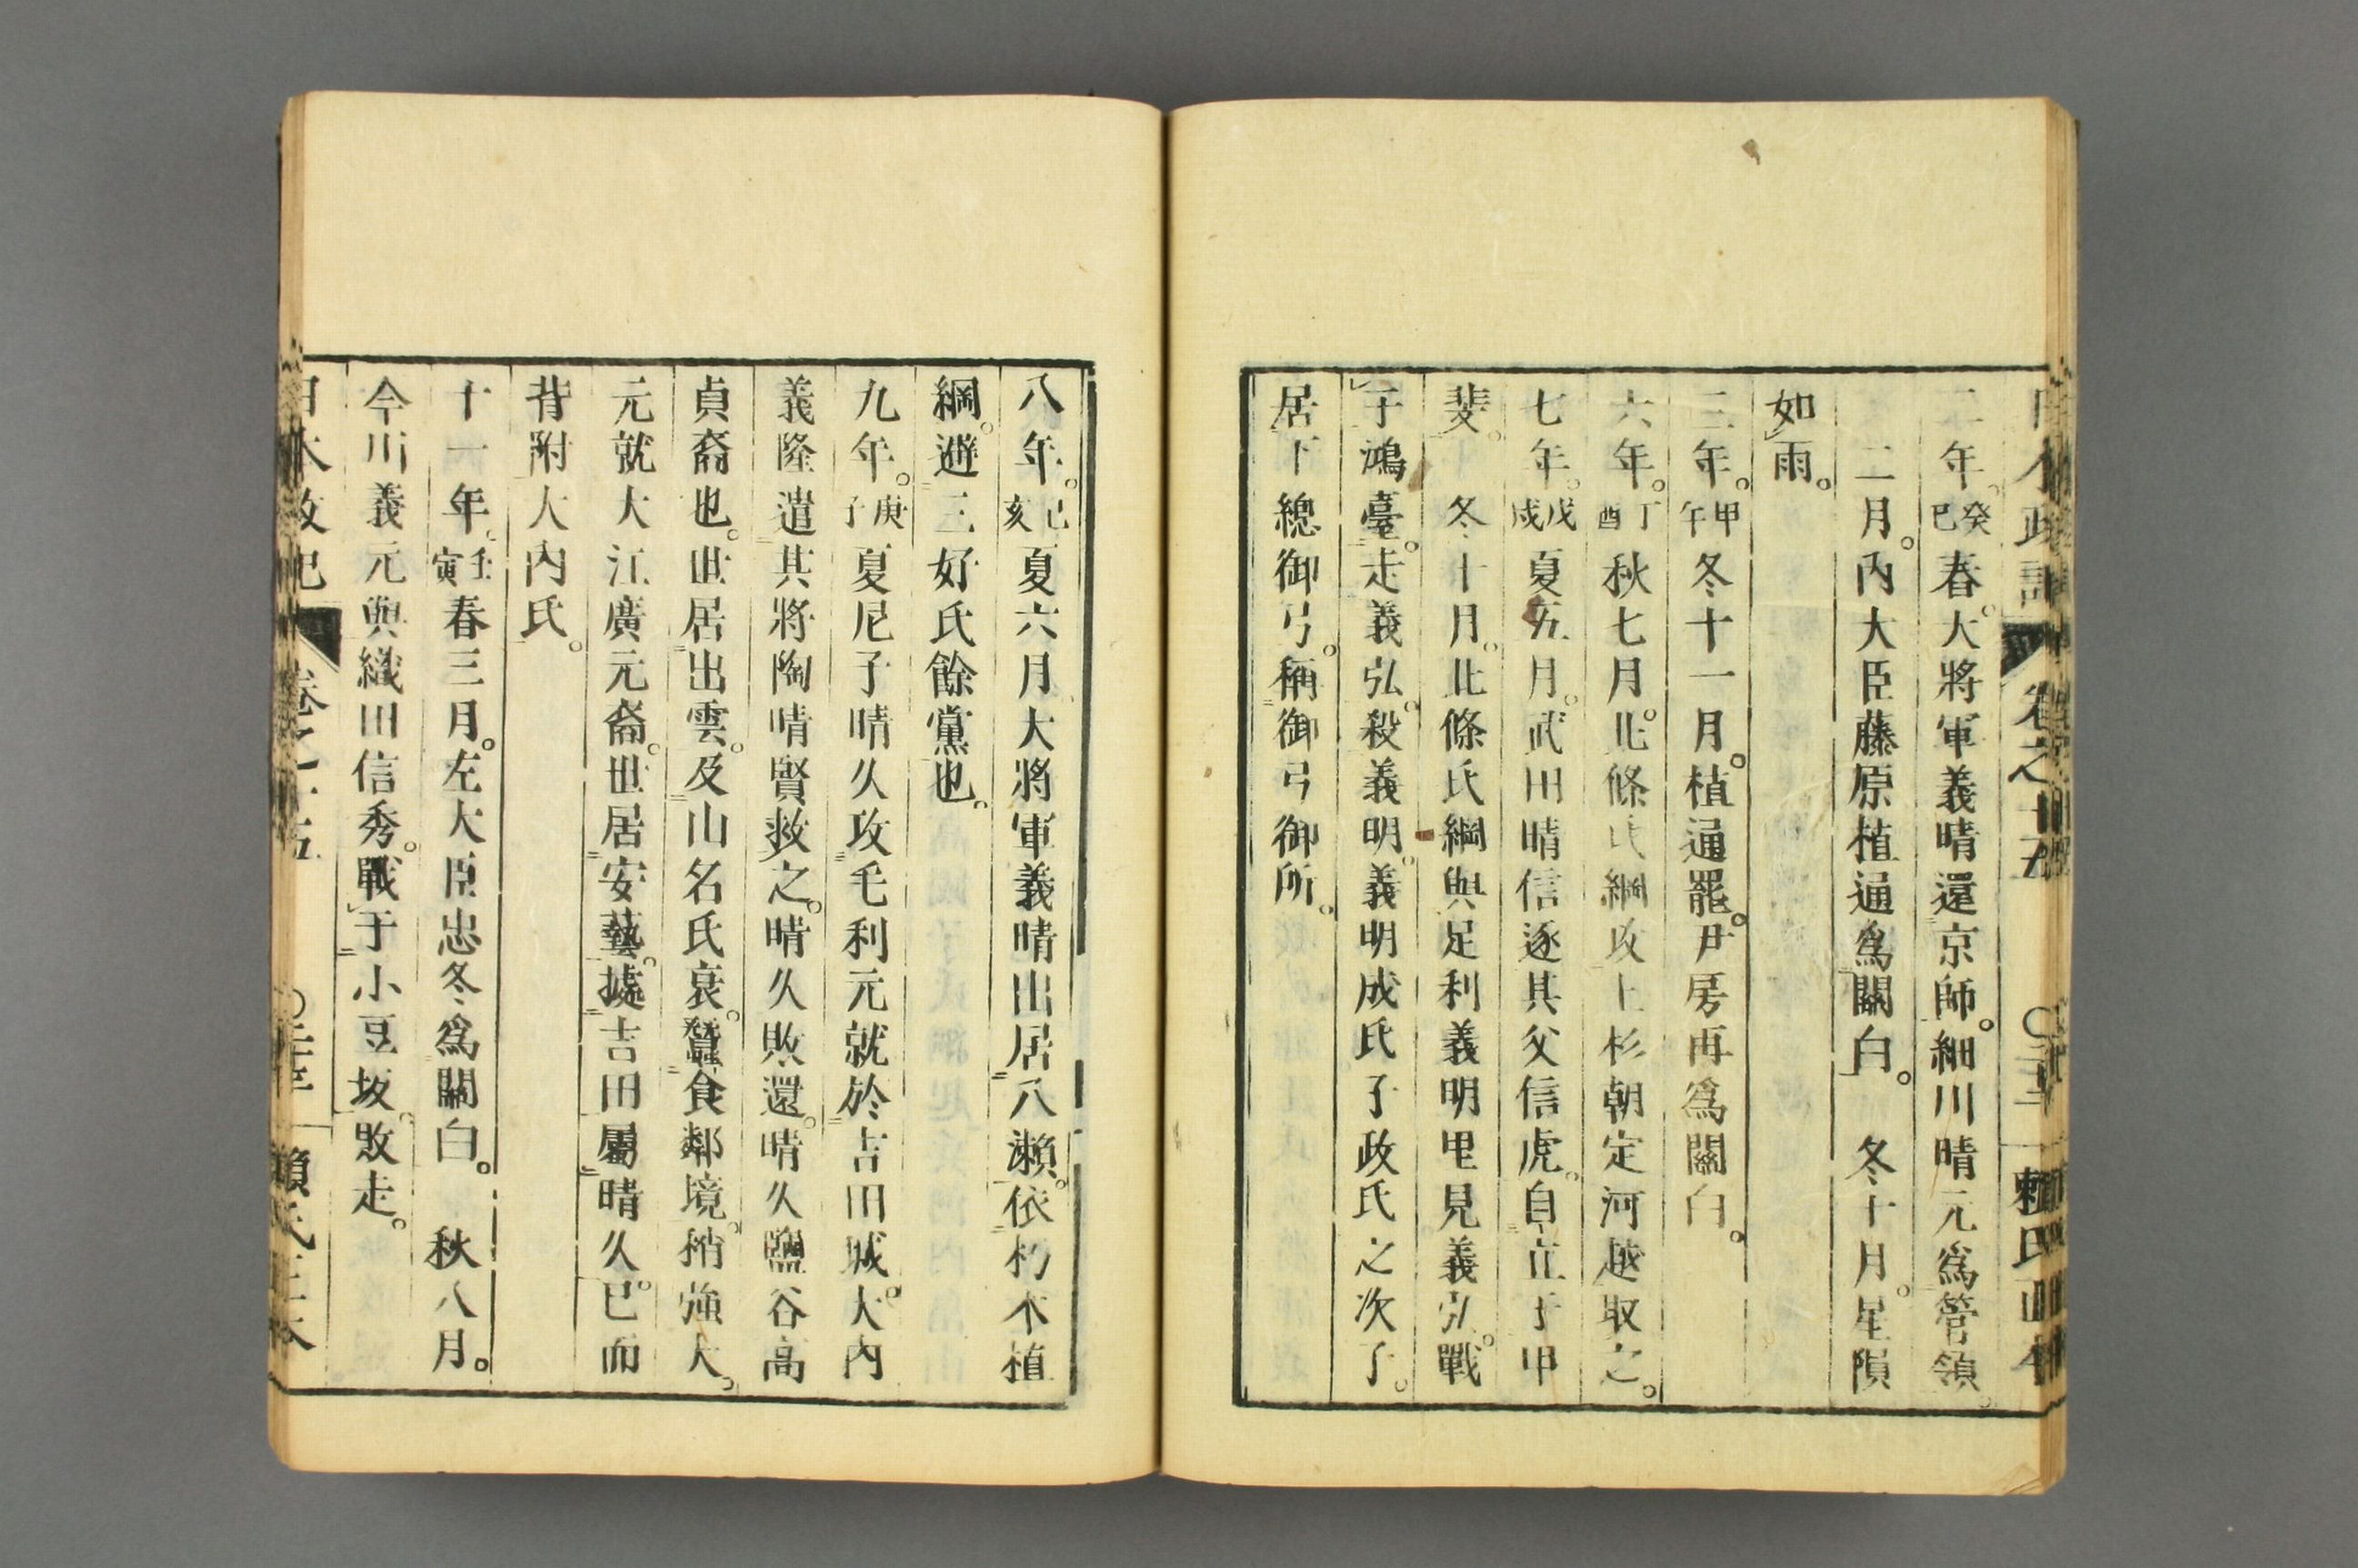 日本政記 卷之十五 ○二十二 賴氏正本
二年。癸巳春。大將軍義晴還京師。細川晴元爲管領。
二月。內大臣藤原植通爲關白。 冬十月。星隕
如雨。
三年。甲午冬十一月。植通罷。尹房再爲關白。
六年。丁酉秋七月。北條氏綱攻上杉朝定河越取之。
七年。戊戌夏五月。武田晴信逐其父信虎。自立于甲
斐。 冬十月。北條氏綱與足利義明里見義弘。戰
于鴻臺。走義弘。殺義明。義明成氏子政氏之次子。
居下總御弓。稱御弓御所。
八年。己亥夏六月大將軍義晴出居八瀨。依朽木植
綱。避三好氏餘黨也。
九年。庚子夏尼子晴久攻毛利元就於吉田城。大內
義隆遣其將陶晴賢救之。晴久敗還。晴久鹽谷高
貞裔也。世居出雲。及山名氏衰。蠶食鄰境。稍強大。
元就大江廣元裔。世居安藝。據吉田屬晴久。已而
背附大內氏。
十一年。壬寅春三月。左大臣忠冬爲關白。 秋八月。
今川義元與織田信秀。戰于小豆坂。敗走。
日本政記 卷之十五 賴氏正本